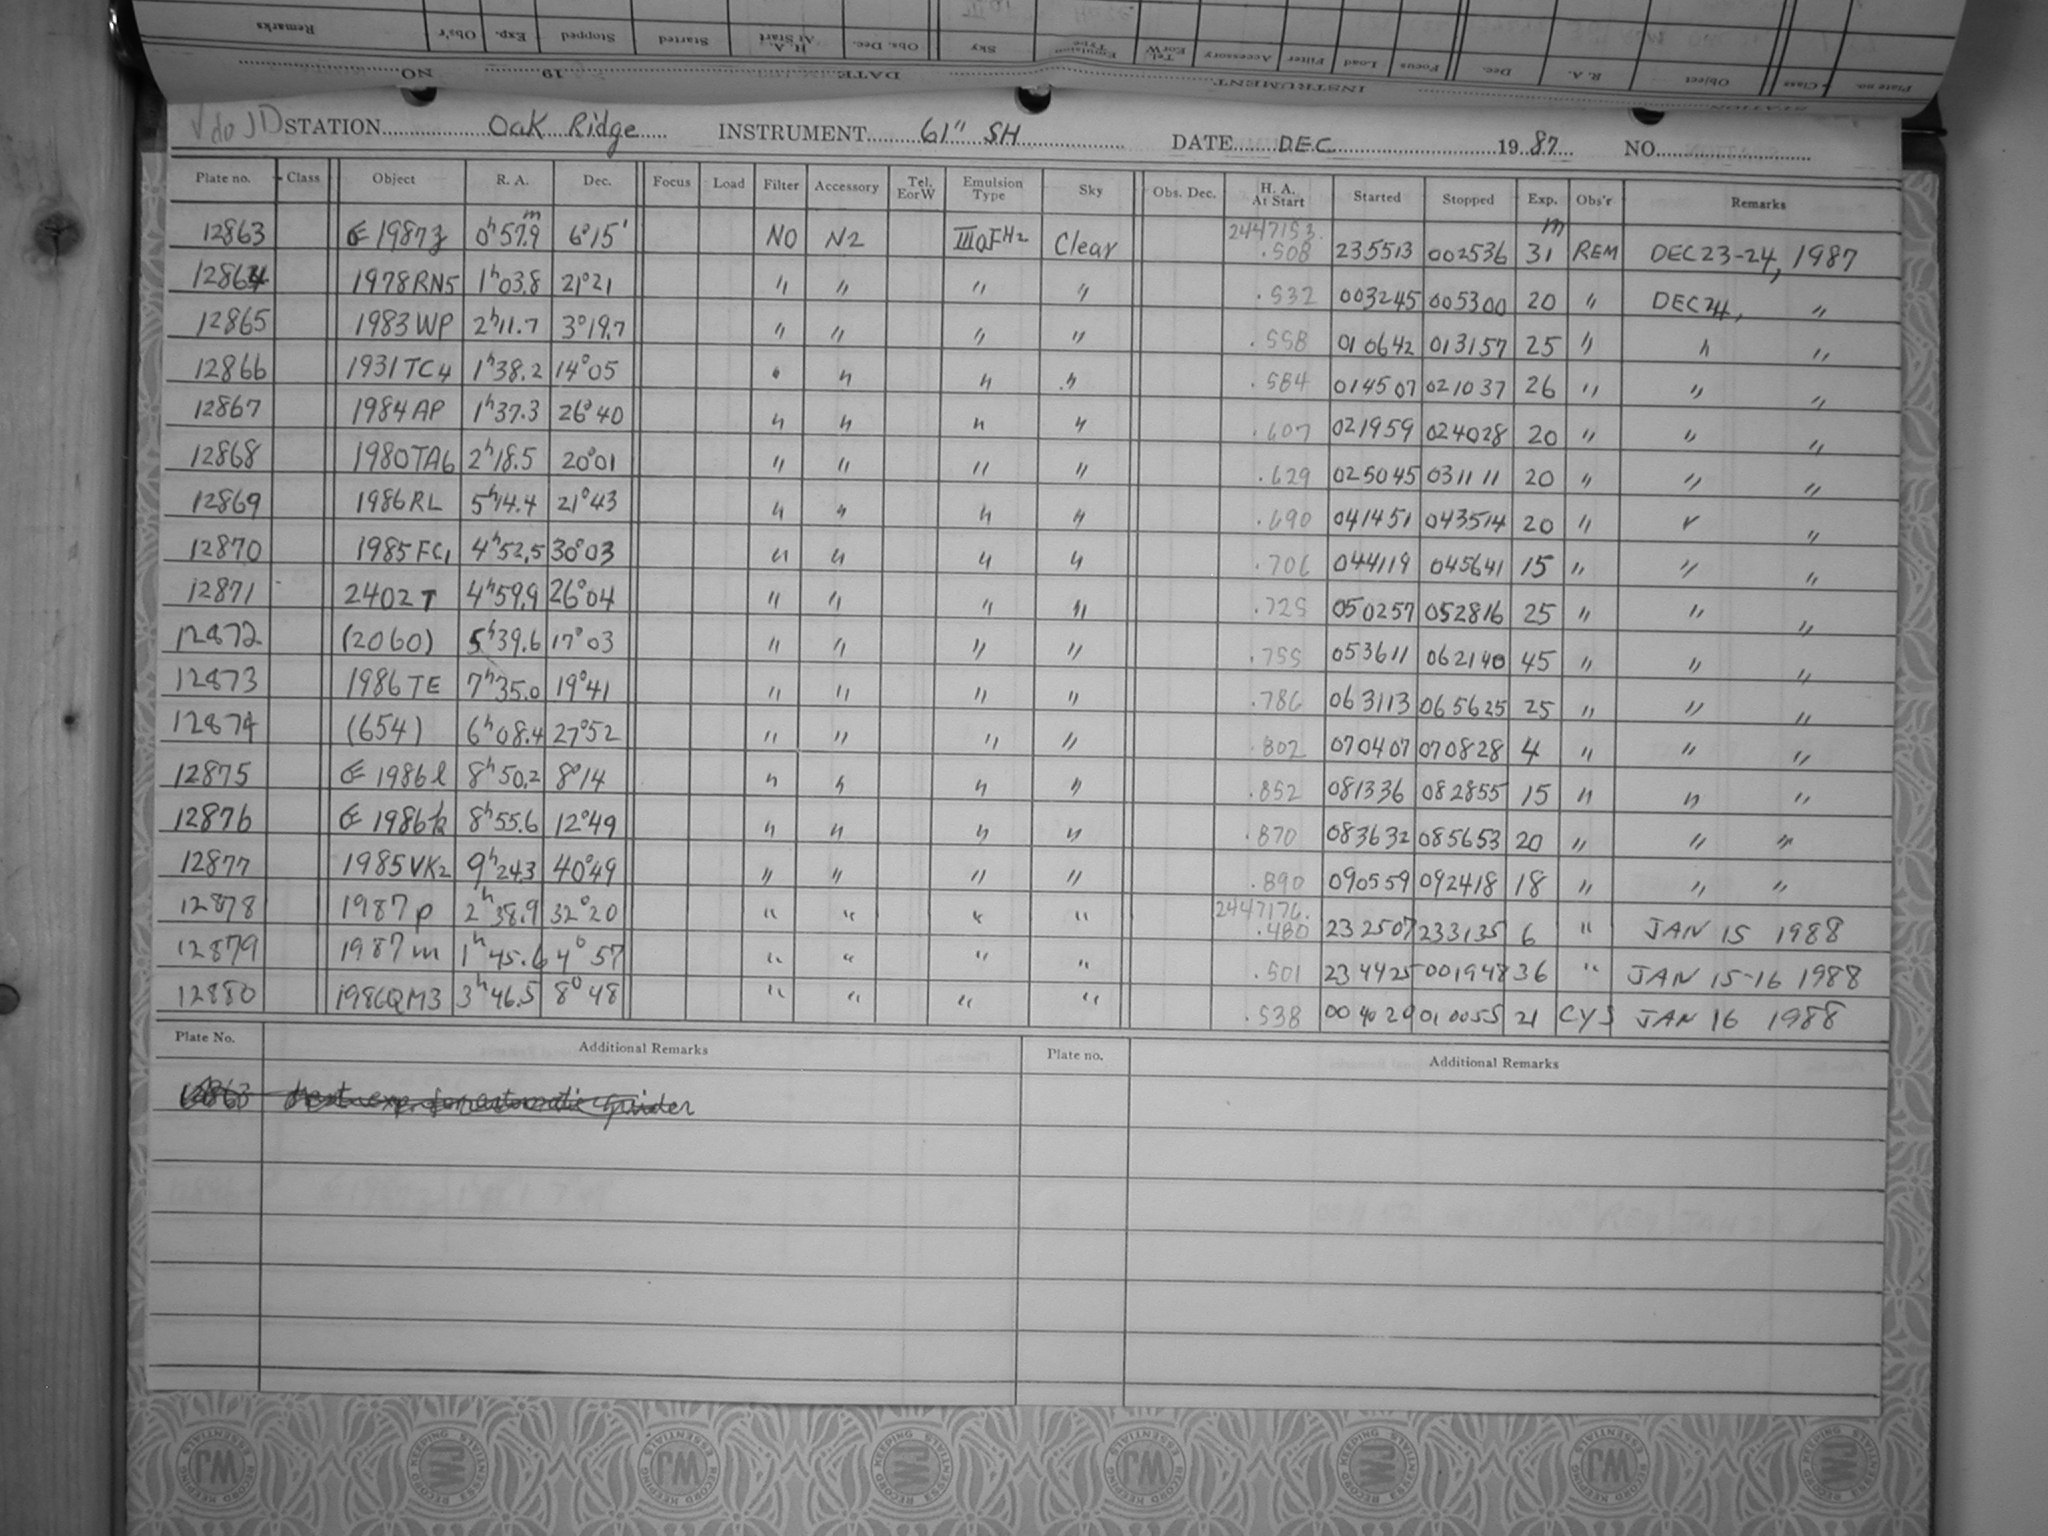 Remarks Obs'r Exp. Stopped Started H. A. At Start Obs. Dec. Sky Emulsion Type Tel. EorW Accessory Filter Load Focus Dec. R. A. Object Class Plate no.
NO. 19 DATE INSTRUMENT STATION
√ do JD STATION Oak Ridge INSTRUMENT 61" SH DATE DEC 19 87 NO.
Plate no. Class Object R. A. Dec. Focus Load Filter Accessory Tel. EorW Emulsion Type Sky Obs. Dec. H. A. At Start Started Stopped Exp. Obs'r Remarks
12863 1987z 0h57.9m 6°15' NO N2 IIIaF H2 Clear 2447153. .508 235513 002536 31m REM DEC 23-24, 1987
12864 1978RN5 1h03.8 21°21 " " " " .532 003245 005300 20 " DEC 24, "
12865 1983WP 2h11.7 3°19.7 " " " " .558 010642 013157 25 " " "
12866 1931TC4 1h38.2 14°05 " " " " .584 014507 021037 26 " " "
12867 1984AP 1h37.3 26°40 " " " " .607 021959 024028 20 " " "
12868 1980TA6 2h18.5 20°01 " " " " .629 025045 031111 20 " " "
12869 1986RL 5h14.4 21°43 " " " " .690 041451 043514 20 " " "
12870 1985FC1 4h52.5 30°03 " " " " .706 044119 045641 15 " " "
12871 2402T 4h59.9 26°04 " " " " .725 050257 052816 25 " " "
12872 (2060) 5h39.6 17°03 " " " " .755 053611 062140 45 " " "
12873 1986TE 7h35.0 19°41 " " " " .786 063113 065625 25 " " "
12874 (654) 6h08.4 27°52 " " " " .802 070407 070828 4 " " "
12875 1986l 8h50.2 8°14 " " " " .852 081336 082855 15 " " "
12876 1986k 8h55.6 12°49 " " " " .870 083632 085653 20 " " "
12877 1985VK2 9h24.3 40°49 " " " " .890 090559 092418 18 " " "
12878 1987p 2h38.9 32°20 " " " " 2447176. .480 232507 233135 6 " JAN 15 1988
12879 1987m 1h45.6 4°57 " " " " .501 234425 001948 36 " JAN 15-16 1988
12880 1986QM3 3h46.5 8°48 " " " " .538 004029 010055 21 CYS JAN 16 1988
Plate No. Additional Remarks Plate no. Additional Remarks
12863 guider
RECORD KEEPING ESSENTIALS